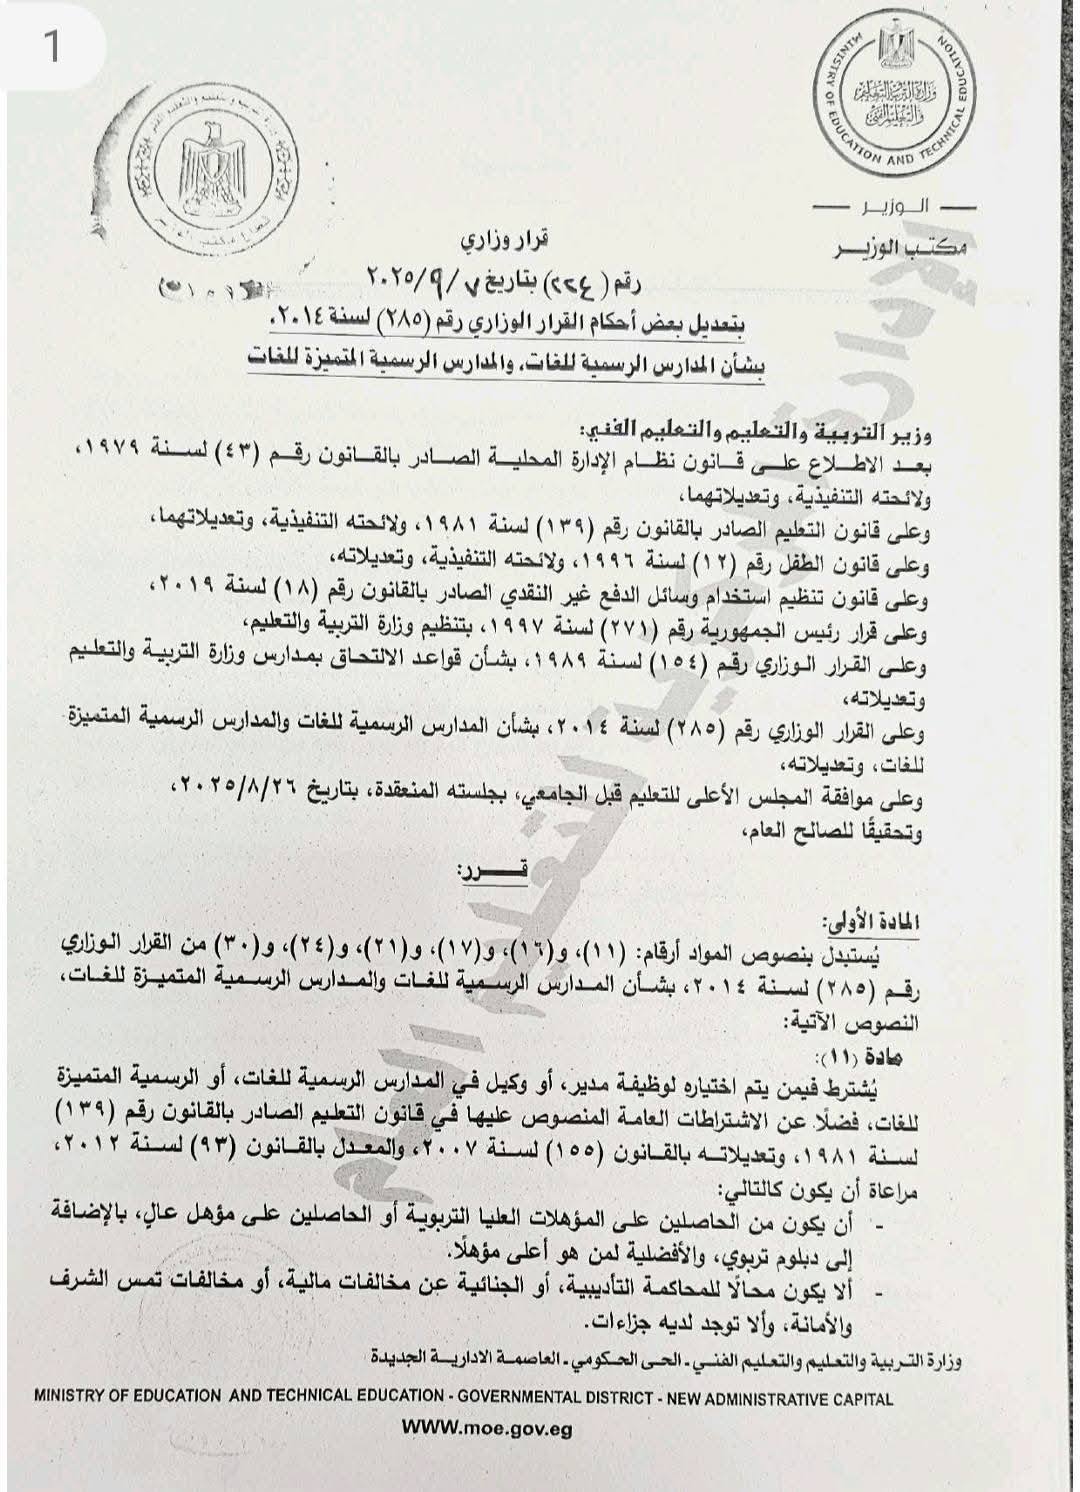 1
MINISTRY OF EDUCATION AND TECHNICAL EDUCATION
وزارة التربية والتعليم
والتعليم الفني
الوزير
مكتب الوزير
قرار وزاري
رقم (٢٢٤) بتاريخ ٢٠٢٥/٩/٧
بتعديل بعض أحكام القرار الوزاري رقم (٢٨٥) لسنة ٢٠١٤،
بشأن المدارس الرسمية للغات، والمدارس الرسمية المتميزة للغات
وزير التربية والتعليم والتعليم الفني:
بعد الاطلاع على قانون نظام الإدارة المحلية الصادر بالقانون رقم (٤٣) لسنة ١٩٧٩،
ولائحته التنفيذية، وتعديلاتهما،
وعلى قانون التعليم الصادر بالقانون رقم (١٣٩) لسنة ١٩٨١، ولائحته التنفيذية، وتعديلاتهما،
وعلى قانون الطفل رقم (١٢) لسنة ١٩٩٦، ولائحته التنفيذية، وتعديلاته،
وعلى قانون تنظيم استخدام وسائل الدفع غير النقدي الصادر بالقانون رقم (١٨) لسنة ٢٠١٩،
وعلى قرار رئيس الجمهورية رقم (٢٧١) لسنة ١٩٩٧، بتنظيم وزارة التربية والتعليم،
وعلى القرار الوزاري رقم (١٥٤) لسنة ١٩٨٩، بشأن قواعد الالتحاق بمدارس وزارة التربية والتعليم
وتعديلاته،
وعلى القرار الوزاري رقم (٢٨٥) لسنة ٢٠١٤، بشأن المدارس الرسمية للغات والمدارس الرسمية المتميزة
للغات، وتعديلاته،
وعلى موافقة المجلس الأعلى للتعليم قبل الجامعي، بجلسته المنعقدة، بتاريخ ٢٠٢٥/٨/٢٦،
وتحقيقًا للصالح العام،
قـــرر:
المادة الأولى:
يُستبدل بنصوص المواد أرقام: (١١)، و(١٦)، و(١٧)، و(٢١)، و(٢٤)، و(٣٠) من القرار الوزاري
رقم (٢٨٥) لسنة ٢٠١٤، بشأن المدارس الرسمية للغات والمدارس الرسمية المتميزة للغات،
النصوص الآتية:
مادة (١١):
يُشترط فيمن يتم اختياره لوظيفة مدير، أو وكيل في المدارس الرسمية للغات، أو الرسمية المتميزة
للغات، فضلًا عن الاشتراطات العامة المنصوص عليها في قانون التعليم الصادر بالقانون رقم (١٣٩)
لسنة ١٩٨١، وتعديلاته بالقانون (١٥٥) لسنة ٢٠٠٧، والمعدل بالقانون (٩٣) لسنة ٢٠١٢،
مراعاة أن يكون كالتالي:
- أن يكون من الحاصلين على المؤهلات العليا التربوية أو الحاصلين على مؤهل عالٍ، بالإضافة
إلى دبلوم تربوي، والأفضلية لمن هو أعلى مؤهلًا.
- ألا يكون محالًا للمحاكمة التأديبية، أو الجنائية عن مخالفات مالية، أو مخالفات تمس الشرف
والأمانة، وألا توجد لديه جزاءات.
وزارة التربية والتعليم والتعليم الفني - الحى الحكومي - العاصمة الادارية الجديدة
MINISTRY OF EDUCATION AND TECHNICAL EDUCATION - GOVERNMENTAL DISTRICT - NEW ADMINISTRATIVE CAPITAL
WWW.moe.gov.eg